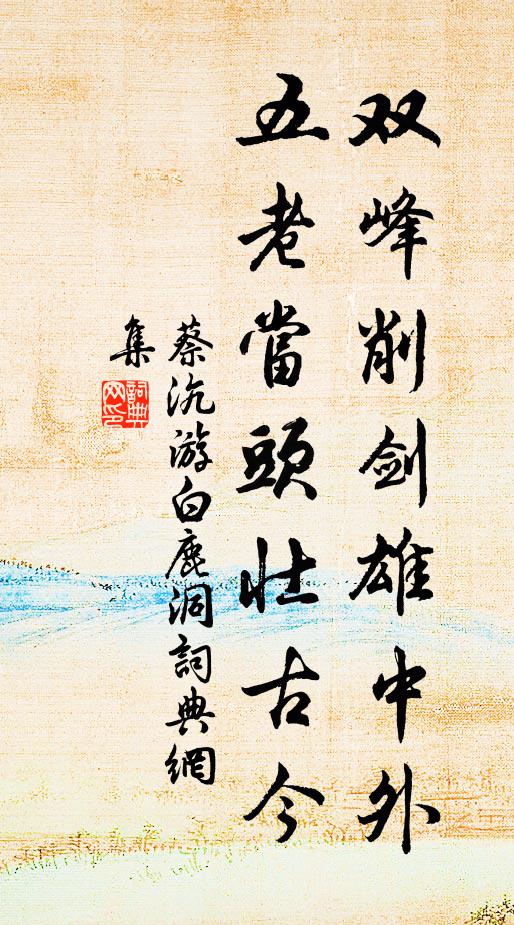 双峰削剑雄中外
五老當頭壮古今
蔡沇游白鹿洞詞典網
集
詞典
网